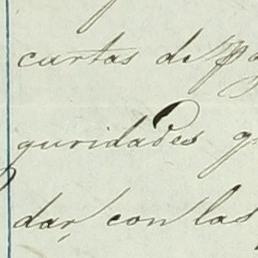 cartas de pa
guridades q
dar, con las